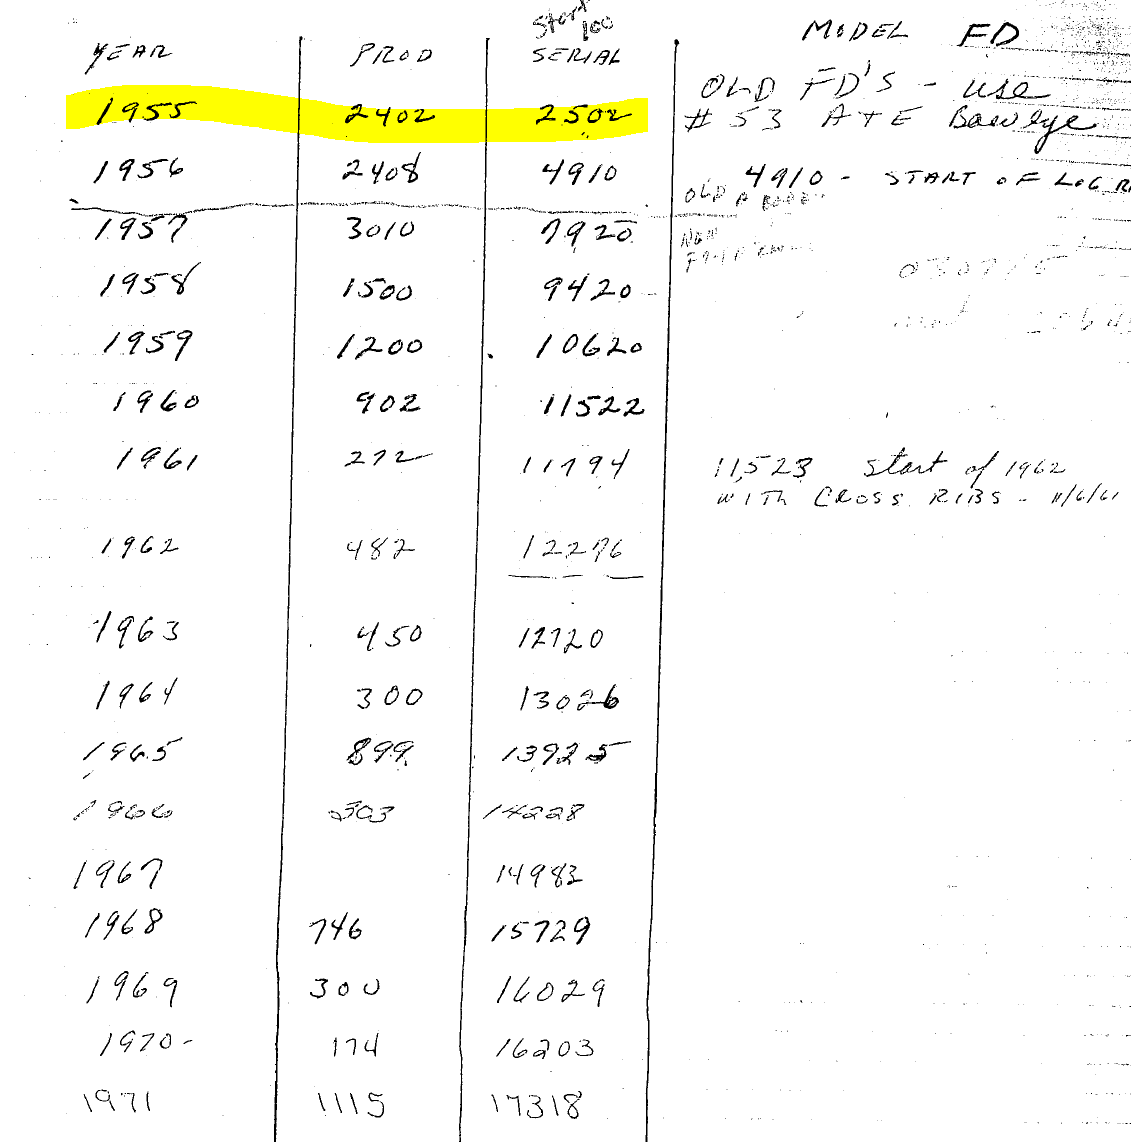 Start
100
YEAR PROD SERIAL MODEL FD
OLD FD'S - use
1955 2402 2502 # 53 A + E
1956 2408 4910 4910 - START OF LOG
OLD
1957 3010 7920 NEW
1958 1500 9420
1959 1200 10620
1960 902 11522
1961 272 11794 11,523 start of 1962
WITH CROSS RIBS - 11/6/61
1962 482 12276
1963 450 12720
1964 300 13026
1965 899 13925
1966 303 14228
1967 14983
1968 746 15729
1969 300 16029
1970- 174 16203
1971 1115 17318